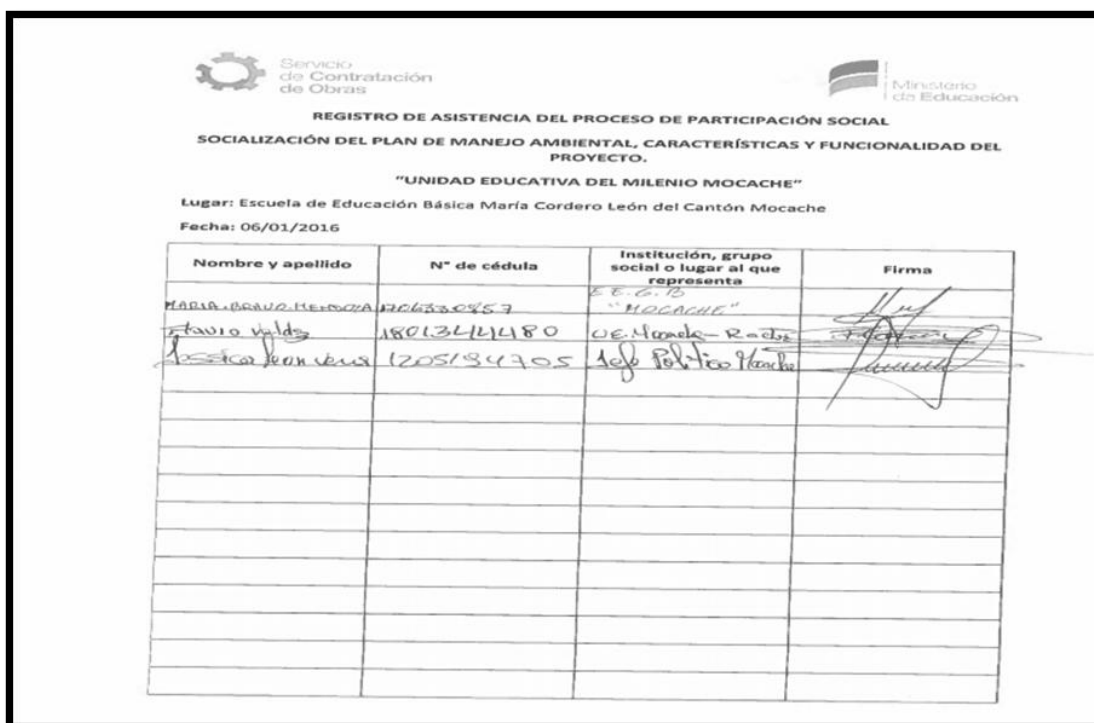 Servicio
de Contratación
de Obras
Ministerio
de Educación
REGISTRO DE ASISTENCIA DEL PROCESO DE PARTICIPACIÓN SOCIAL
SOCIALIZACIÓN DEL PLAN DE MANEJO AMBIENTAL, CARACTERÍSTICAS Y FUNCIONALIDAD DEL
PROYECTO.
"UNIDAD EDUCATIVA DEL MILENIO MOCACHE"
Lugar: Escuela de Educación Básica María Cordero León del Cantón Mocache
Fecha: 06/01/2016
Nombre y apellido N° de cédula Institución, grupo social o lugar al que representa Firma
MARIA BRAVO MENDOZA 1706330857 E.E.G.B "MOCACHE"
1801344480 UE. Mocache - Rector
1205194705 Jefe Político Mocache